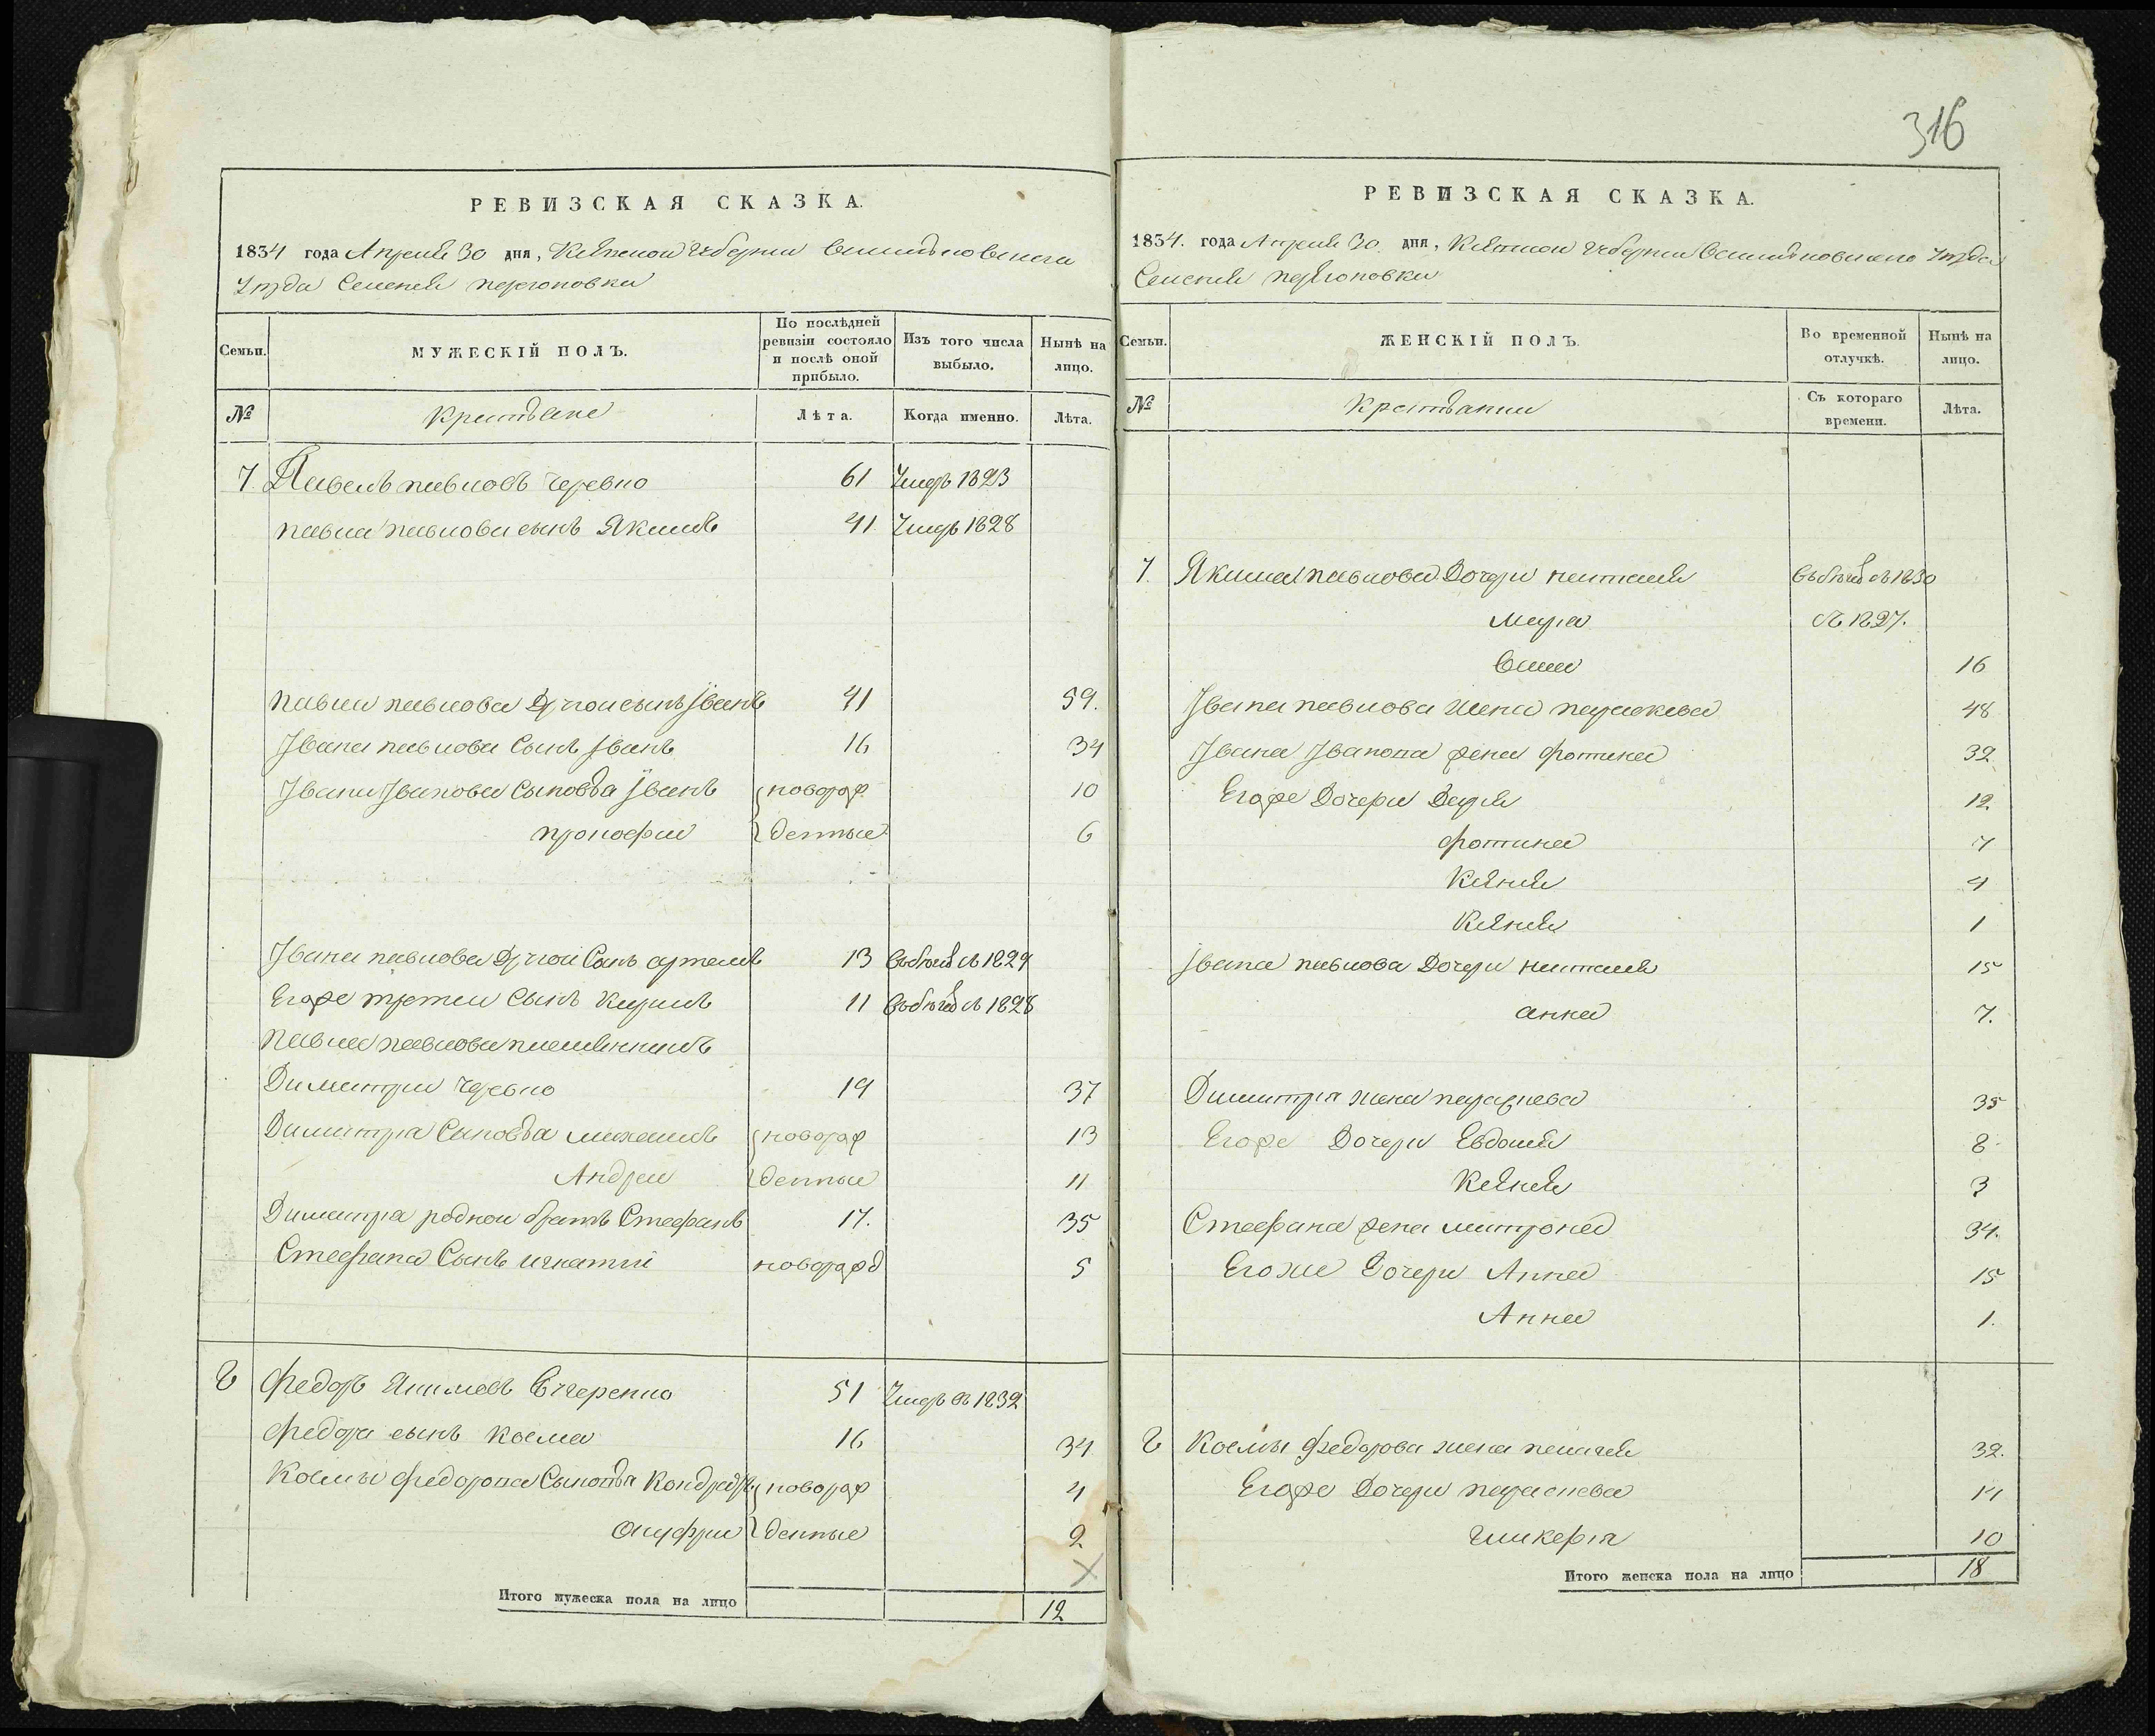 316
РЕВИЗСКАЯ СКАЗКА.
1834 года Апреля 30 дня, Киевской Губернии
Уезда Селения
Семьи.
МУЖЕСКІЙ ПОЛЪ.
По послѣдней ревизіи состояло и послѣ оной прибыло.
Изъ того числа выбыло.
Нынѣ на лицо.
№
Крестьяне
Лѣта.
Когда именно.
Лѣта.
7. Павелъ павловъ 61 Умеръ 1823
павла павлова сынъ Якимъ 41 Умеръ 1828
павла павлова Другои сынъ Іванъ 41 59.
Івана павлова Сынъ Іванъ 16 34
Івана Іванова Сыновья Іванъ новорож 10
прокофии денные 6
Івана павлова Другои Сынъ артемъ 13 въ бегах съ 1829
Егоже третии Сынъ 11 въ бегах съ 1828
Павла павлова племянникъ
Димитрии 19 37
Димитрия Сыновья михаилъ новорож 13
Андреи денные 11
Димитрия роднои братъ Стефанъ 17. 35
Стефана Сынъ игнатіи новорожд 5
8 Федоръ 51 Умеръ въ 1832
Федора сынъ Косма 16 34
Космы Федорова Сыновья новорож 4
Онуфрии денные 2
Итого мужеска пола на лицо 12
РЕВИЗСКАЯ СКАЗКА.
1834. года Апреля 30 дня, Киевской Губернии Уезда
Селения
Семьи.
ЖЕНСКІЙ ПОЛЪ.
Во временной отлучкѣ.
Нынѣ на лицо.
№
Крестьянки
Съ котораго времени.
Лѣта.
7. Якима павлова Дочери наталия въ бегах съ 1830
съ 1827.
16
Івана павлова жена параскева 48
Івана Іванова жена фотина 32
Егоже Дочери Дария 12
фотина 7
Ксения 4
Ксения 1
Івана павлова Дочери наталия 15
анна 7.
Димитрия жена параскева 35
Егоже Дочери Евдокия 8
Ксения 3
Стефана жена матрона 34.
Егоже Дочери Анна 15
Анна 1.
8 Космы Федорова жена пелагея 32.
Егоже Дочери параскева 11
гликерия 10
Итого женска пола на лицо 18